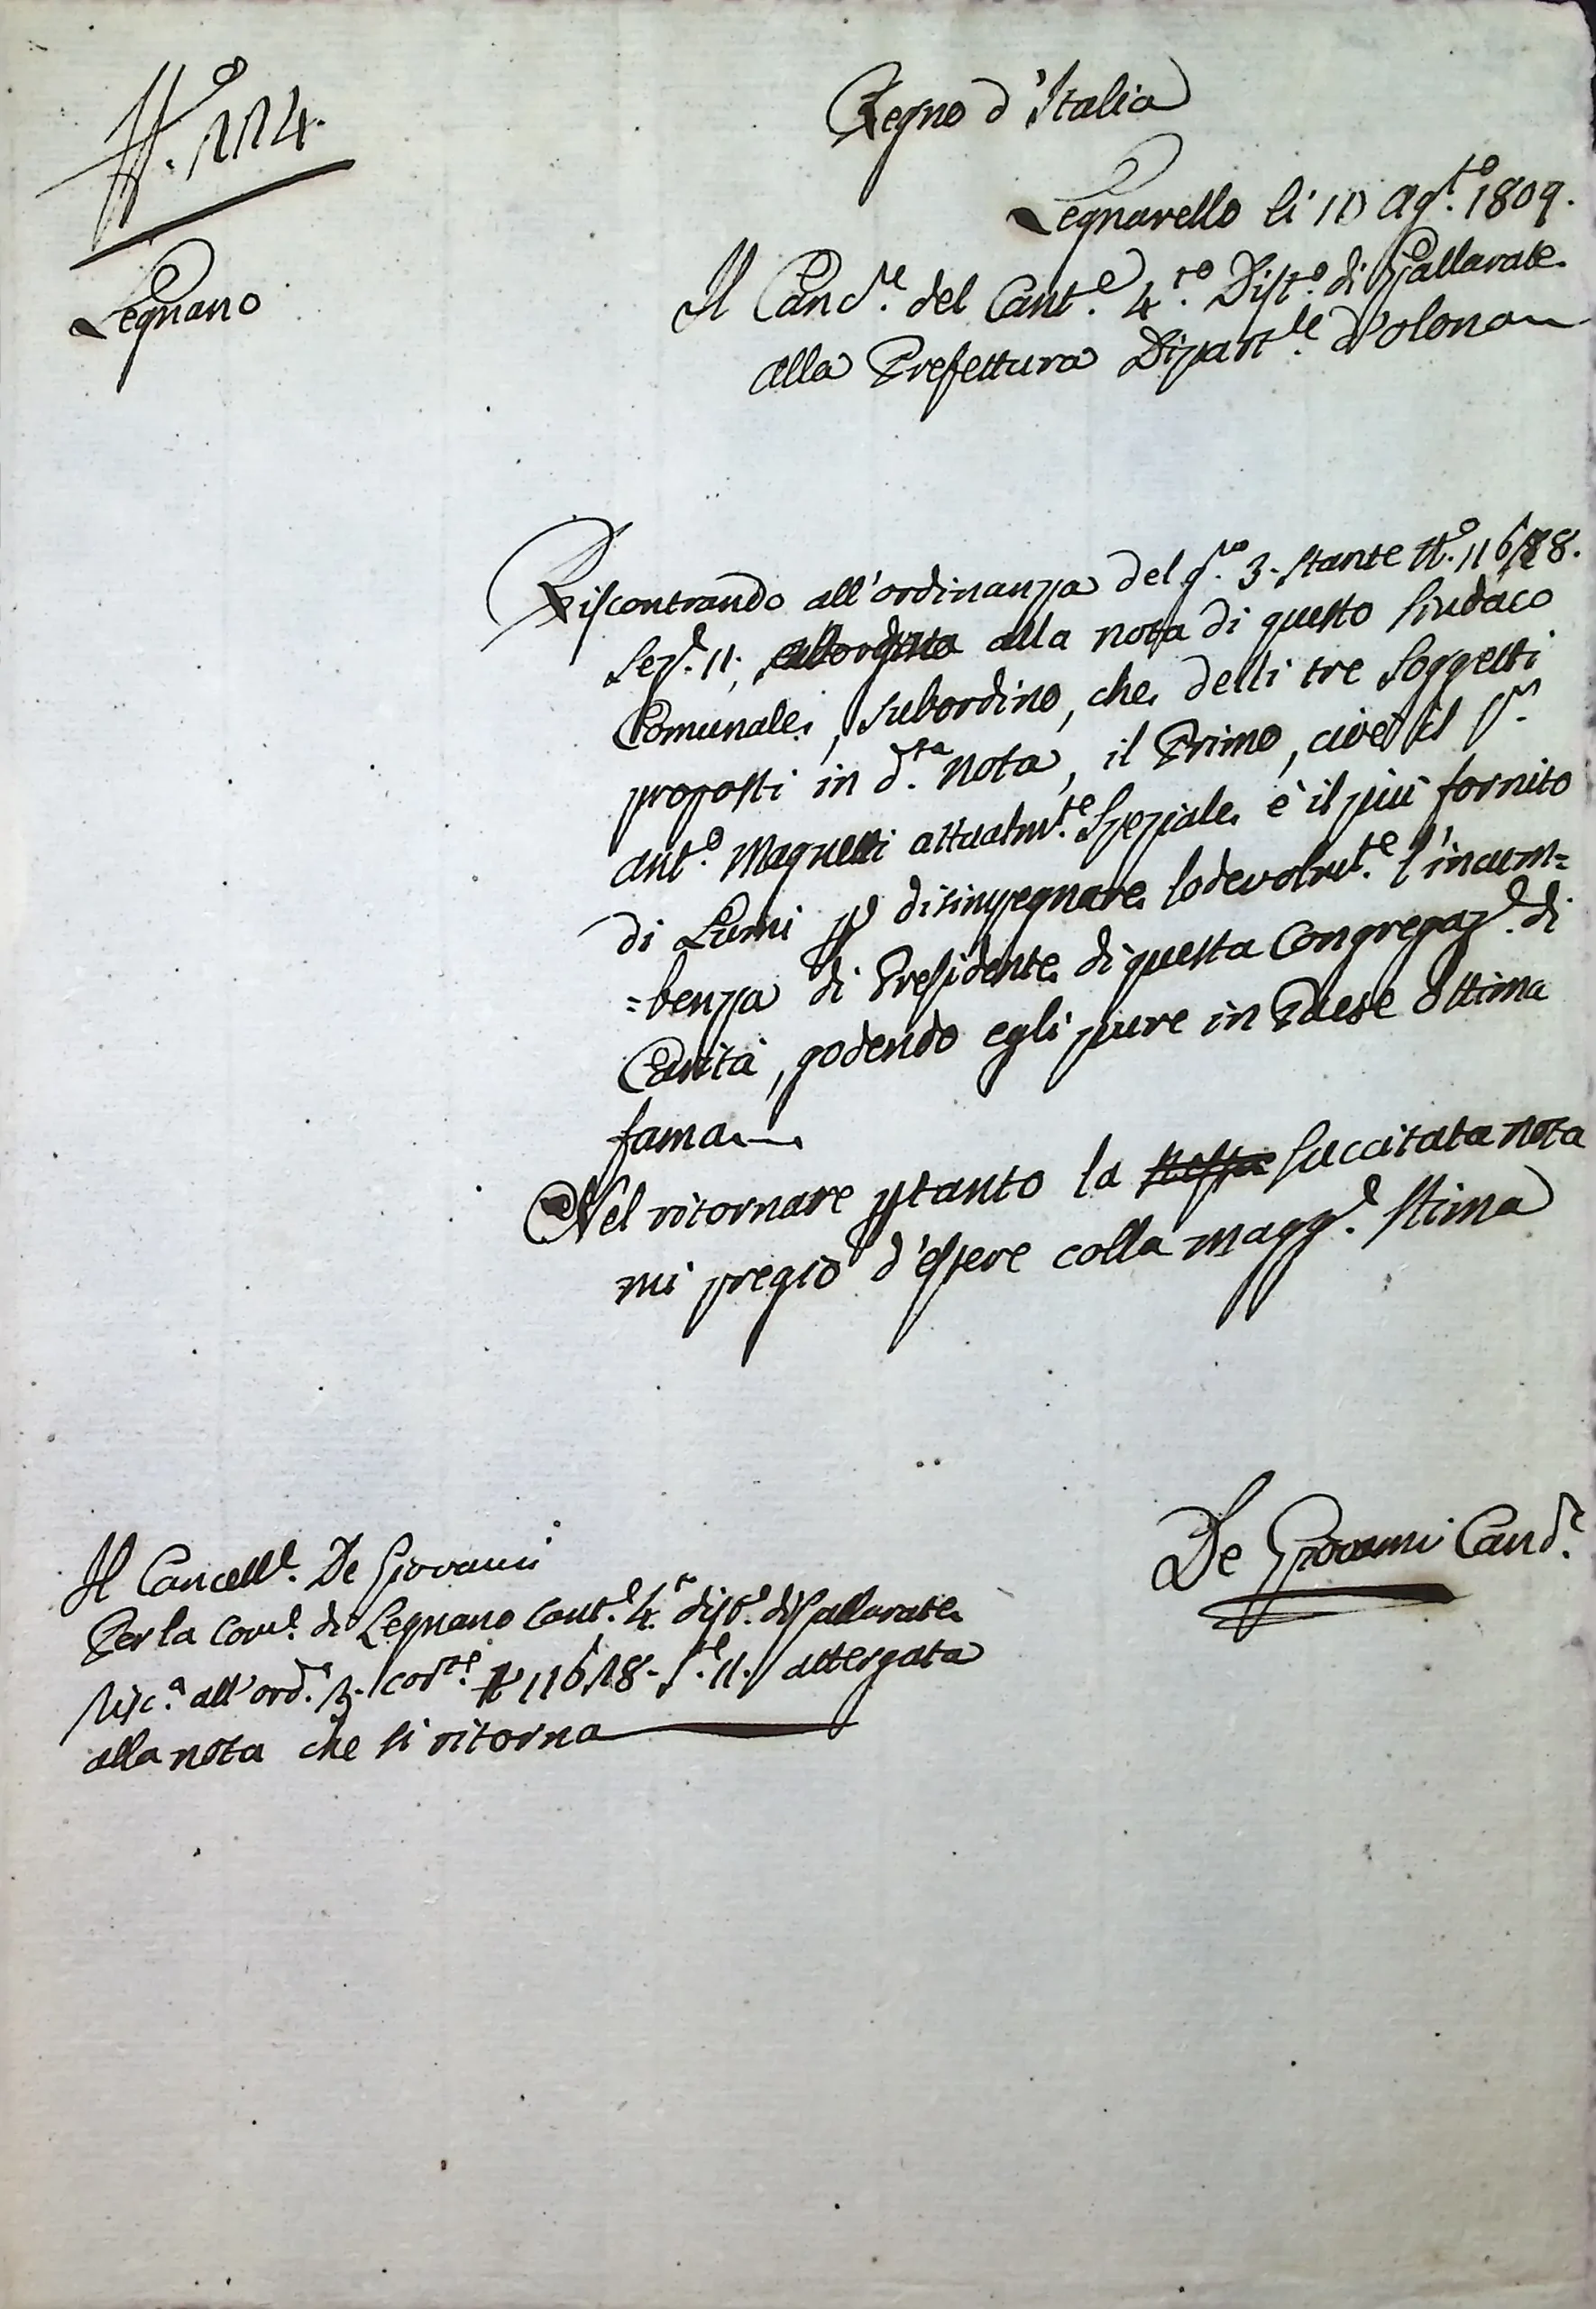 N.º 114.
Legnano
Regno d'Italia
Legnarello li 11 Ag.to 1809.
Il Canc.re del Cant.e 4.to Dist.o di Gallarate
alla Prefettura Dipart.le d'Olona
Riscontrando all'ordinanza del g.no 3. stante N.º 11618.
Sez.e 11, alla nota di questo Sindaco
Comunale, subordino, che delli tre soggetti
proposti in d.ta nota, il Primo, cioè il Sr.
Ant.o attualm.te Speziale è il più fornito
di Lumi p disimpegnare lodevolm.te l'incum=
=benza di Presidente di questa Congregaz.e di
Carità, godendo egli pure in Paese ottima
fama.
Nel ritornare ptanto la succitata nota
mi pregio d'essere colla magg.e stima
De Giovanni Canc.e
Il Cancell.e De Giovanni
Per la Com.e di Legnano Cant.e 4.o dist.o di Gallarate
Risc.a all'ord.a 3. cor.te N 11618. S.e 11. attergata
alla nota che si ritorna